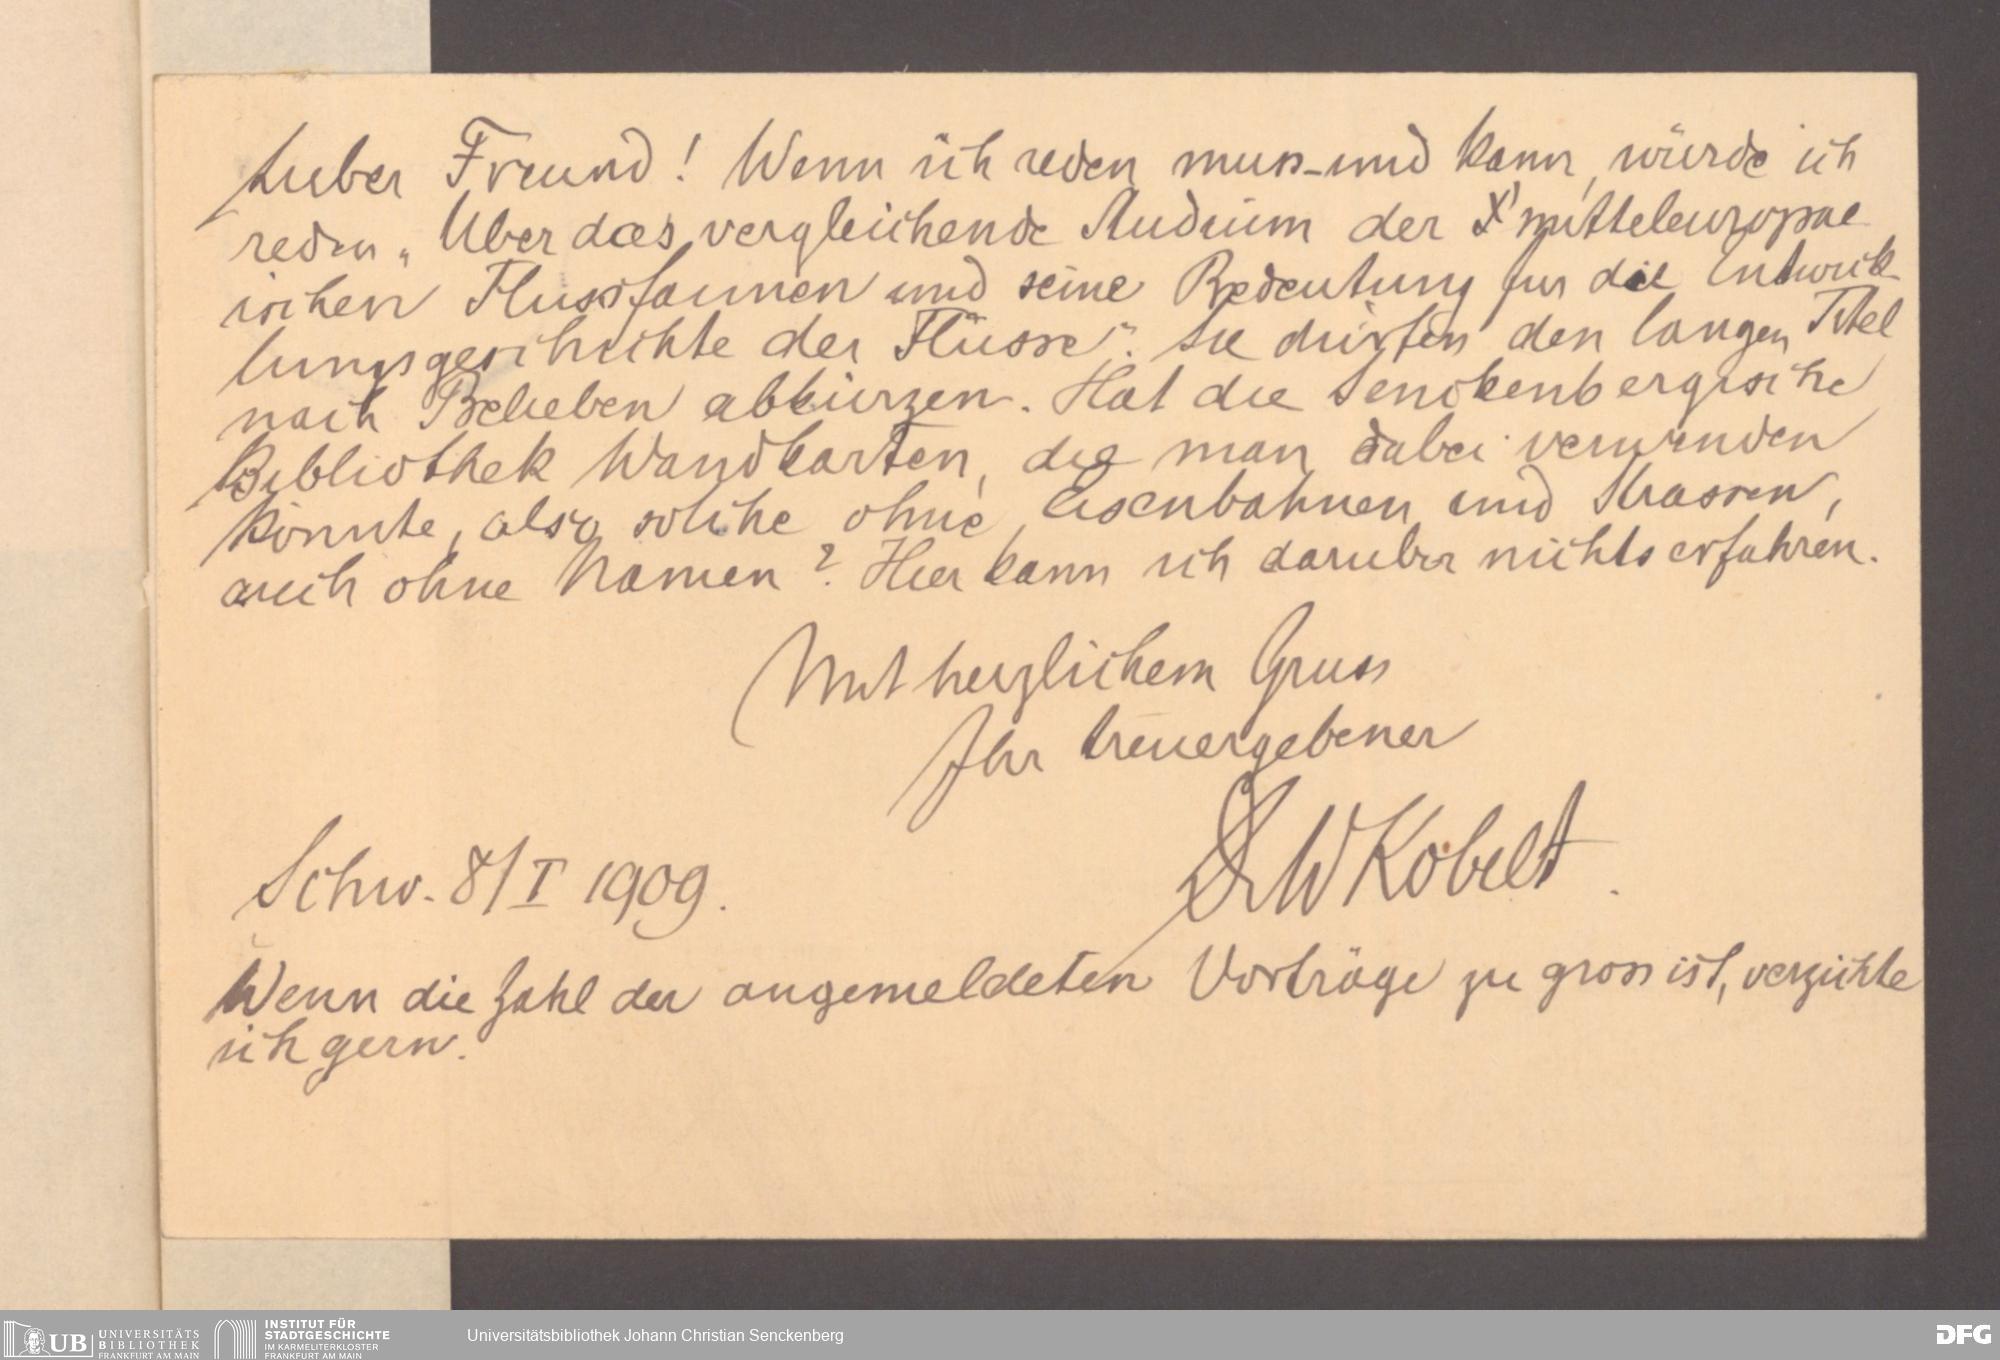 Lieber Freund! Wenn ich reden muss und kann, würde ich
reden „Über das vergleichende Studium der mitteleuropae
ischen Flussfaunen und seine Bedeutung für die Entwick-
lungsgeschichte der Flüsse“. Sie dürfen den langen Titel
nach Belieben abkürzen. Hat die Senckenbergische
Bibliothek Wandkarten, die man dabei verwenden
könnte, also solche ohne Eisenbahnen und Strassen,
auch ohne Namen? Hier kann ich darüber nichts erfahren.
Mit herzlichem Gruss
Ihr treuergebener
Dr W Kobelt.
Schw. 8/I 1909.
Wenn die Zahl der angemeldeten Vorträge zu gross ist, verzichte
ich gern.
UB UNIVERSITÄTS
BIBLIOTHEK
FRANKFURT AM MAIN
INSTITUT FÜR
STADTGESCHICHTE
IM KARMELITERKLOSTER
FRANKFURT AM MAIN
Universitätsbibliothek Johann Christian Senckenberg
DFG